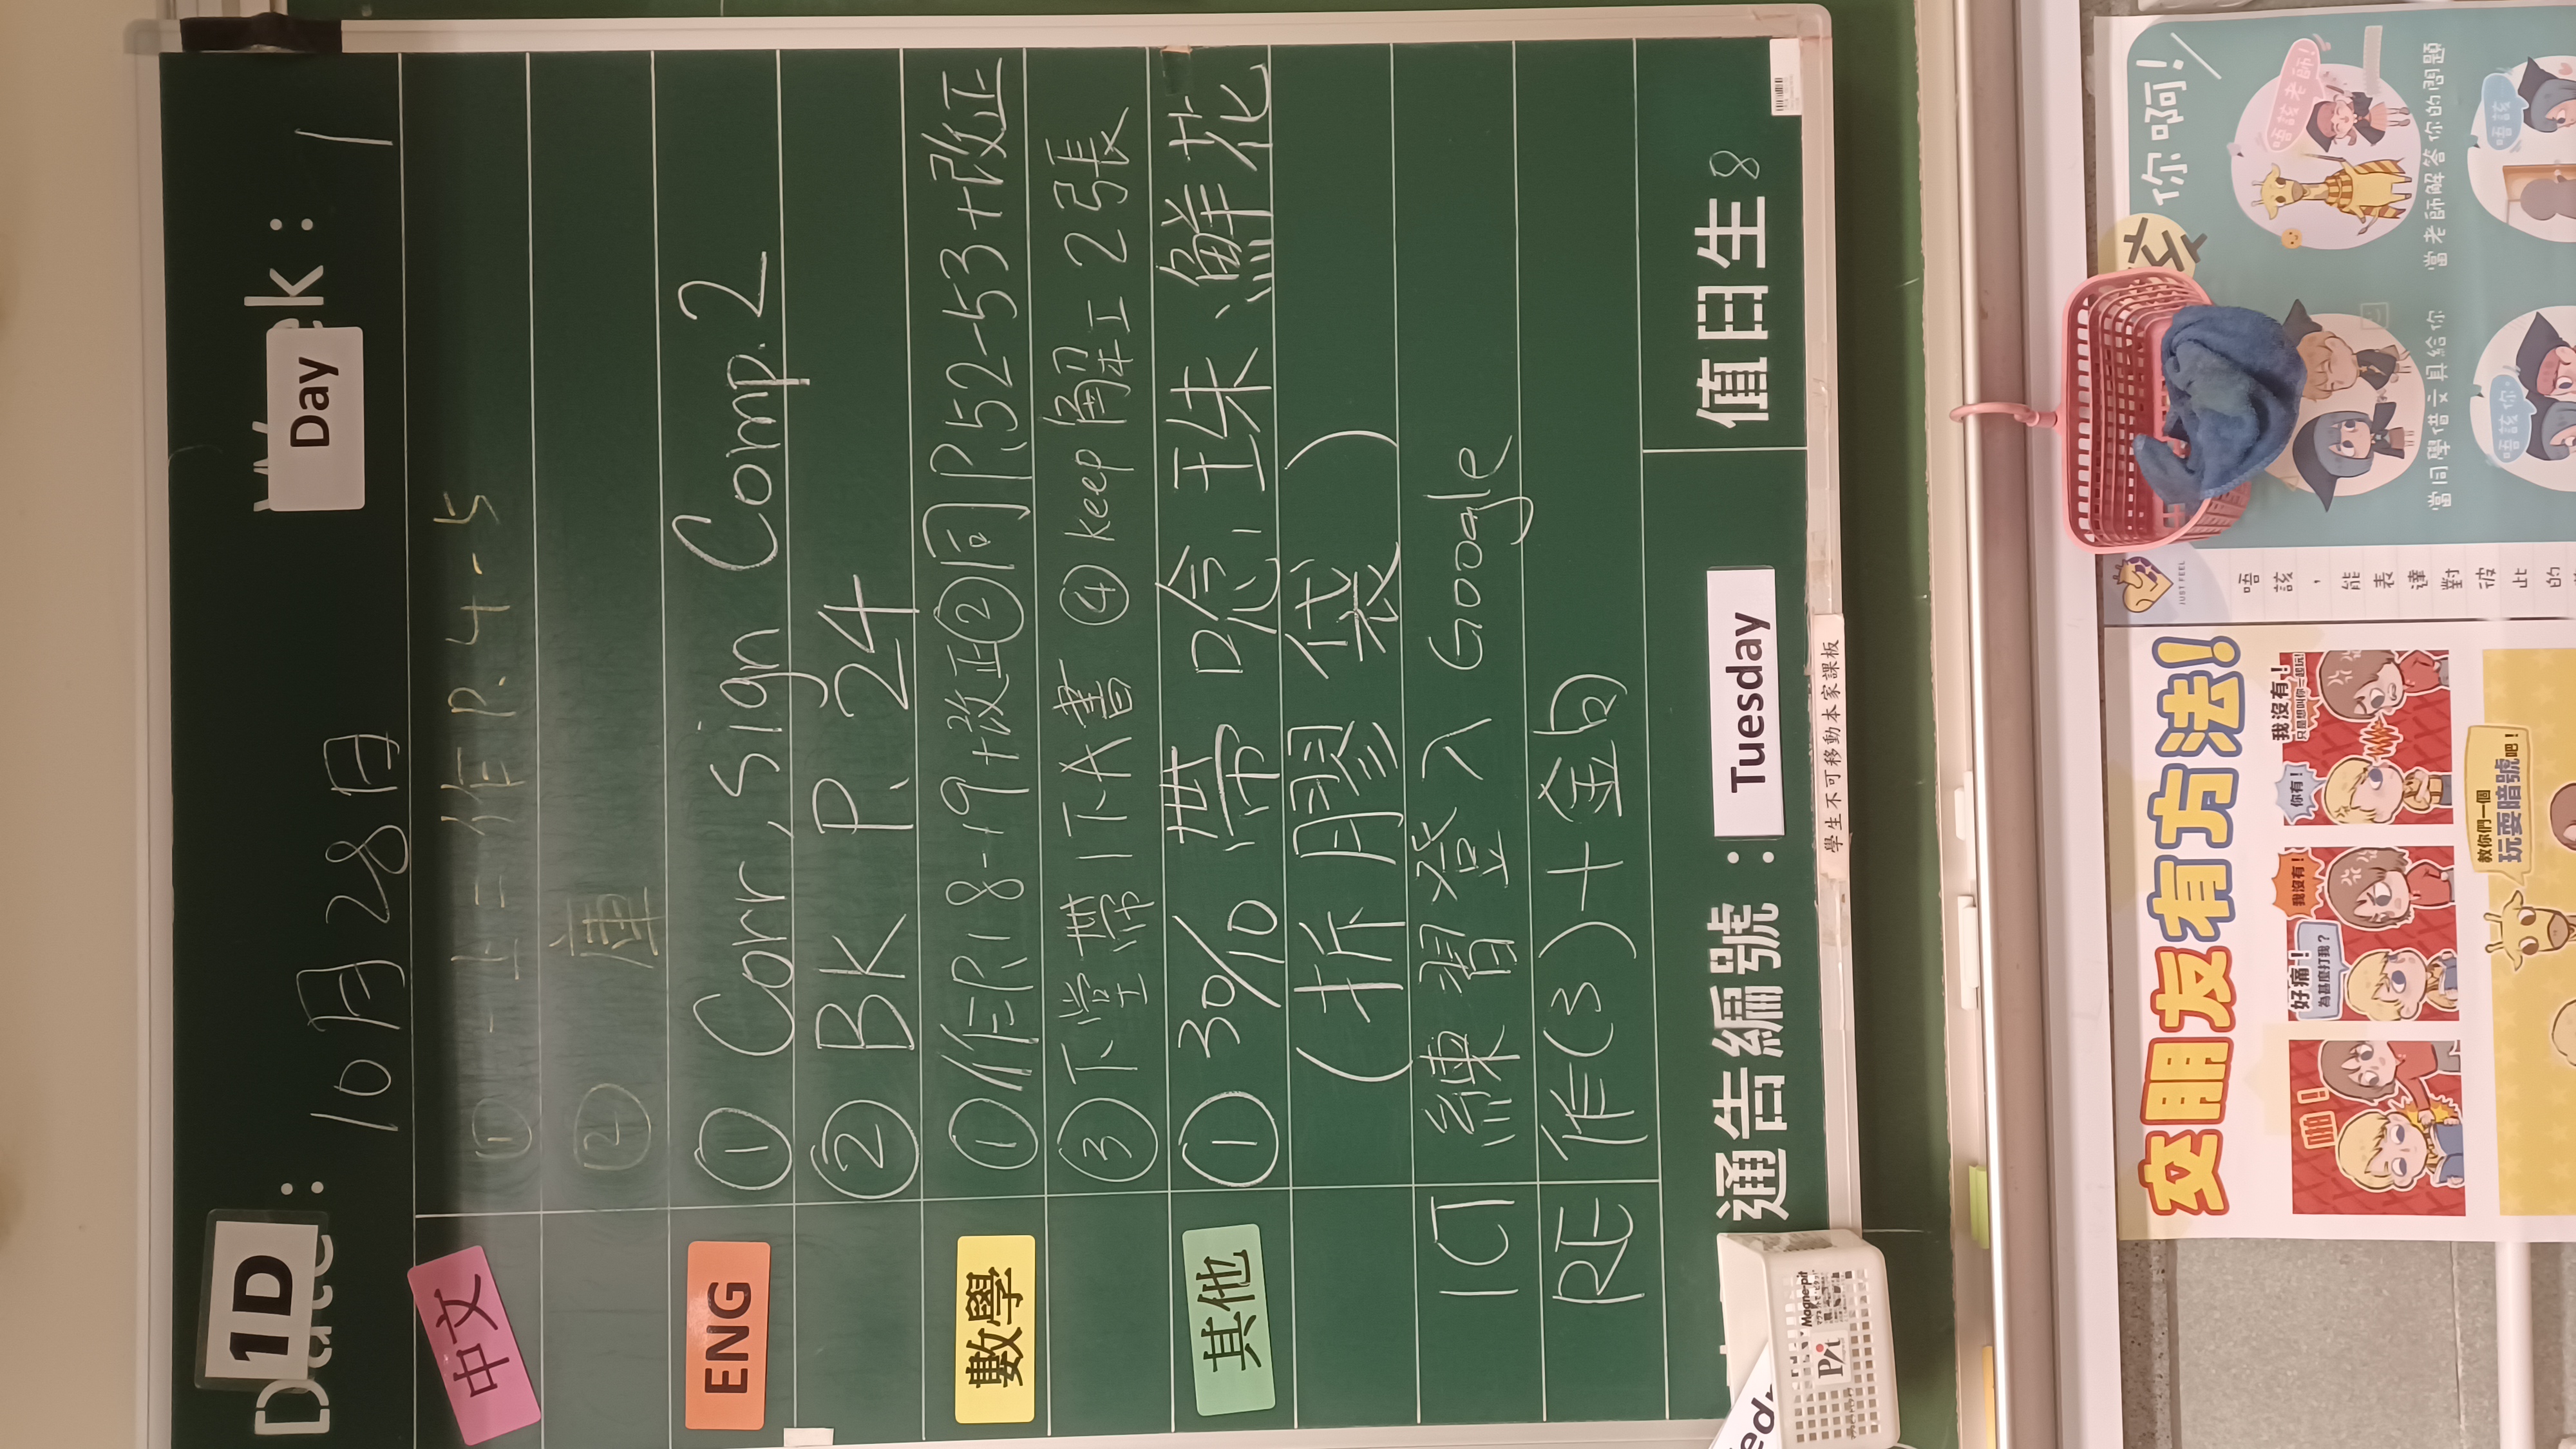 1D
Date : 10月28日 Day : 1
中文 ① 一上二作 P. 4-5
②
ENG ① Corr, Sign Comp. 2
② BK P. 24
數學 ① 作P.18-19+改正 ② 同P.52-53+改正
③ 下堂帶1下A書 ④ keep 解工2張
其他 ① 30/10 帶 唸珠、鮮花
(拆膠袋)
ICT 練習登入 Google
RE 作(3)+金句
通告編號 : Tuesday 值日生 8
學生不可移動本家課板
Magne-pit
Pit
交朋友有方法!
啪!
好痛!
為甚麼打我?
我沒有!
你有!
我沒有!
教你們一個
玩耍暗號吧!
JUST FEEL
唔該，能表達對彼此的
你啊!
當同學借文具給你
當老師解答你的問題
唔該老師!
唔該你
唔該